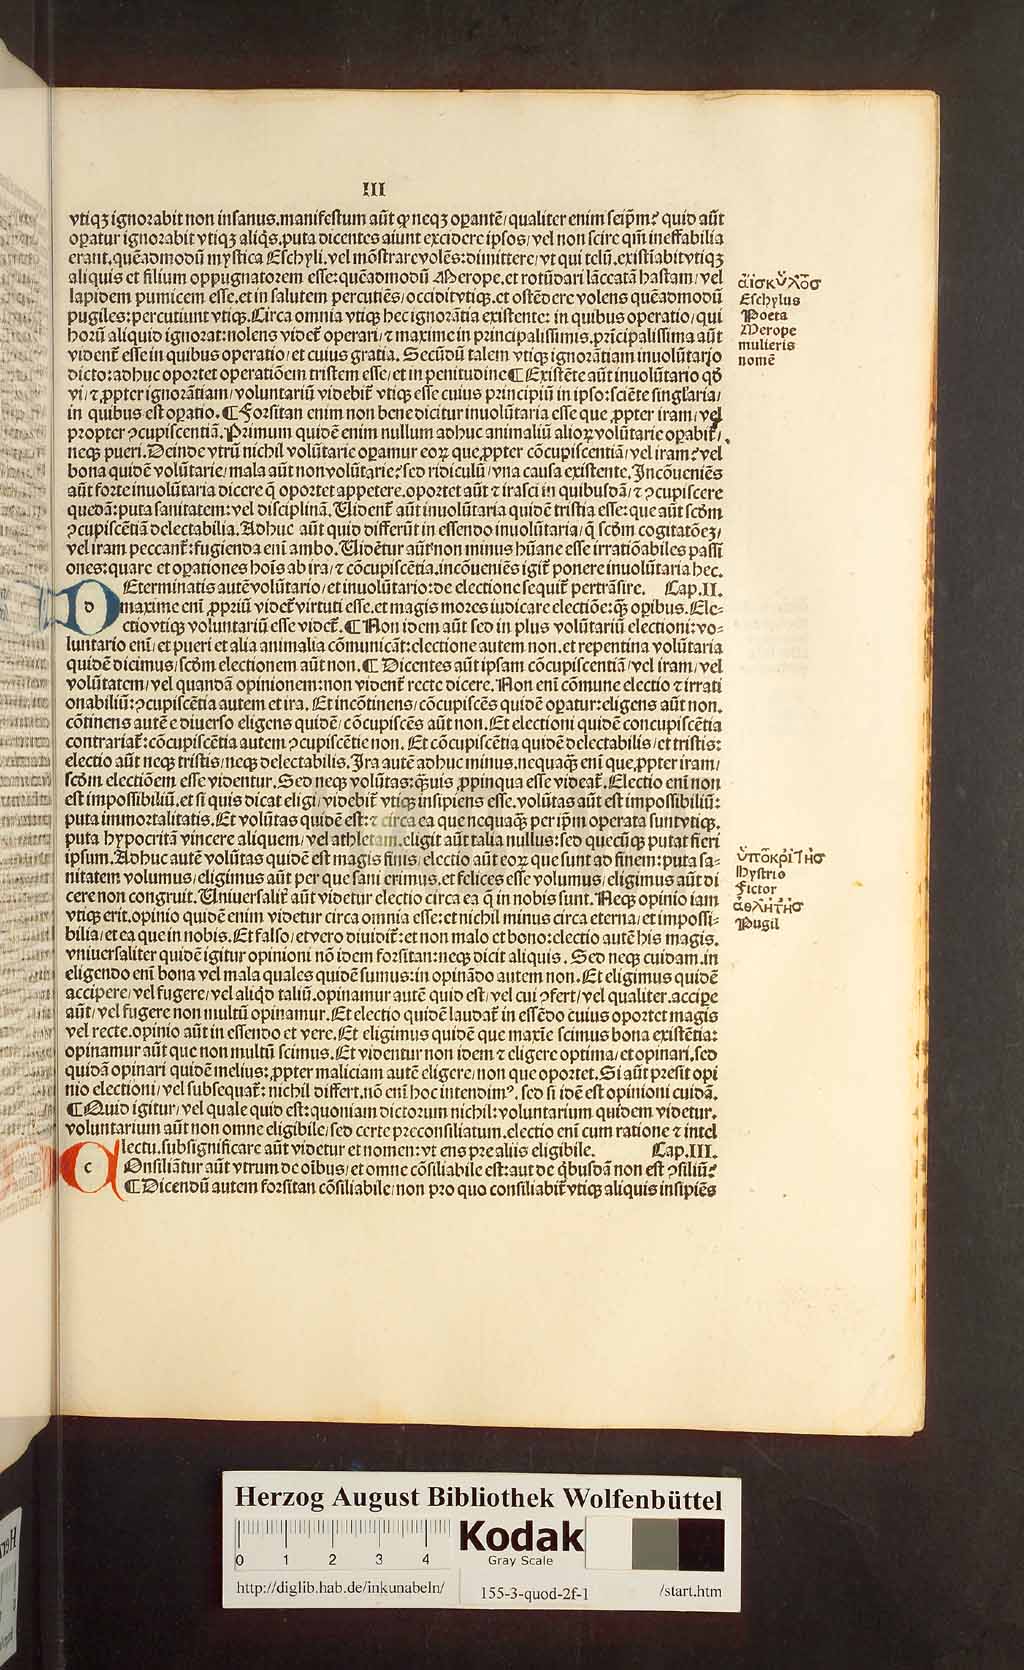 III
vtiqꝫ ignorabit non insanus.manifestum aūt qꝙ neqꝫ oꝑantē/qualiter enim seip̄m? quid aūt
oꝑatur ignorabit vtiqꝫ aliq̄s.puta dicentes aiunt excidere ipsos/vel non scire qm̄ ineffabilia
erant.quēadmodū mystica Eschyli.vel mōstrare volēs:dimittere/vt qui telū.existiabit vtiqꝫ
aliquis et filium oppugnatorem esse:quēadmodū Merope.et rotūdari lāccatā hastam/vel
lapidem pumicem esse.et in salutem percutiēs/occidit vtiqꝫ.et ostēdere volens quēadmodū
pugiles:percutiunt vtiqꝫ.Circa omnia vtiqꝫ hec ignorātia existente: in quibus operatio/qui
horū aliquid ignorat:nolens videt̄ operari/⁊ maxime in principalissimis.pr̄icipalissima aūt
vident̄ esse in quibus operatio/et cuius gratia. Secūdū talem vtiqꝫ ignorātiam inuolūtario
dicto:adhuc oportet operatiōem tristem esse/et in penitudine ¶ Existēte aūt inuolūtario qd̄
vi/⁊ ꝓpter ignorātiam/voluntariū videbit̄ vtiqꝫ esse cuius principiū in ipso:sciēte singlaria/
in quibus est oꝑatio. ¶ Forsitan enim non bene dicitur inuolūtaria esse que ꝓpter iram/vel
propter ꝯcupiscentiā.Primum quidē enim nullum adhuc animaliū alioꝝ volūtarie oꝑabit̄/
neqꝫ pueri.Deinde vtrū nichil volūtarie oꝑamur eoꝝ que ꝓpter cōcupiscentiā/vel iram?vel
bona quidē volūtarie/mala aūt non volūtarie?sed ridiculū/vna causa existente.Incōueniēs
aūt forte inuolūtaria dicere q̄ oportet appetere.oportet aūt ⁊ irasci in quibusdā/⁊ ꝯcupiscere
quedā:puta sanitatem:vel disciplinā.Uident̄ aūt inuolūtaria quidē tristia esse:que aūt scd̄m
ꝯcupiscētiā delectabilia.Adhuc aūt quid differūt in essendo inuolūtaria/q̄ scd̄m cogitatōeꝫ/
vel iram peccant̄:fugienda enī ambo.Uidētur aūt non minus hūane esse irratiōabiles passi
ones:quare et oꝑationes hoīs ab ira/⁊ cōcupiscētia.incōueniēs igit̄ ponere inuolūtaria hec.
DEterminatis autē volūtario/et inuolūtario:de electione sequit̄ pertrāsire. Cap.II.
maxime enī ꝓpriū videt̄ virtuti esse.et magis mores iudicare electiōe:qꝫ̄ opibus.Ele-
ctio vtiqꝫ voluntariū esse videt̄. ¶ Non idem aūt sed in plus volūtariū electioni:vo-
luntario enī/et pueri et alia animalia cōmunicāt:electione autem non.et repentina volūtaria
quidē dicimus/scd̄m electionem aūt non. ¶ Dicentes aūt ipsam cōcupiscentiā/vel iram/vel
volūtatem/vel quandā opinionem:non vident̄ recte dicere.Non enī cōmune electio ⁊ irrati
onabiliū:ꝯcupiscētia autem et ira. Et incōtinens/cōcupiscēs quidē oꝑatur:eligens aūt non.
cōtinens autē e diuerso eligens quidē/cōcupiscēs aūt non.Et electioni quidē concupiscētia
contrariat̄:cōcupiscētia autem ꝯcupiscētie non. Et cōcupiscētia quidē delectabilis/et tristis:
electio aūt neqꝫ tristis/neqꝫ delectabilis.Ira autē adhuc minus.nequaqꝫ̄ enī que ꝓpter iram/
scd̄m electiōem esse videntur.Sed neqꝫ volūtas:qꝫ̄uis ꝓpinqua esse videat̄.Electio enī non
est impossibiliū.et si quis dicat eligi/videbit̄ vtiqꝫ insipiens esse.volūtas aūt est impossibiliū:
puta immortalitatis.Et volūtas quidē est:⁊ circa ea que nequaqꝫ̄ per ip̄m operata sunt vtiqꝫ.
puta hypocritā vincere aliquem/vel athletam.eligit aūt talia nullus:sed quecūqꝫ putat fieri
ipsum.Adhuc autē volūtas quidē est magis finis/electio aūt eoꝝ que sunt ad finem:puta sa-
nitatem volumus/eligimus aūt per que sani erimus.et felices esse volumus/eligimus aūt di
cere non congruit.Uniuersalit̄ aūt videtur electio circa ea q̄ in nobis sunt.Neqꝫ opinio iam
vtiqꝫ erit.opinio quidē enim videtur circa omnia esse:et nichil minus circa eterna/et impossi-
bilia/et ea que in nobis.Et falso/et vero diuidit̄:et non malo et bono:electio autē his magis.
vniuersaliter quidē igitur opinioni nō idem forsitan:neqꝫ dicit aliquis. Sed neqꝫ cuidam.in
eligendo enī bona vel mala quales quidē sumus:in opinādo autem non.Et eligimus quidē
accipere/vel fugere/vel aliqd̄ taliū.opinamur autē quid est/vel cui ꝯfert/vel qualiter.accipe
aūt/vel fugere non multū opinamur.Et electio quidē laudat̄ in essēdo cuius oportet magis
vel recte.opinio aūt in essendo et vere.Et eligimus quidē que maxīe scimus bona existētia:
opinamur aūt que non multū scimus.Et videntur non idem ⁊ eligere optima/et opinari.sed
quidā opinari quidē melius:ꝓpter maliciam autē eligere/non que oportet.Si aūt presit opi
nio electioni/vel subsequat̄: nichil differt.nō enī hoc intendimꝰ. sed si idē est opinioni cuidā.
¶ Quid igitur/vel quale quid est:quoniam dictorum nichil:voluntarium quidem videtur.
voluntarium aūt non omne eligibile/sed certe preconsiliatum.electio enī cum ratione ⁊ intel
lectu.subsignificare aūt videtur et nomen:vt ens pre aliis eligibile. Cap.III.
COnsiliātur aūt vtrum de oībus/et omne cōsiliabile est:aut de qͥbusdā non est ꝯsiliū?
¶ Dicendū autem forsitan cōsiliabile/non pro quo consiliabit̄ vtiqꝫ aliquis insipiēs
ἀισκὔλὅσ
Eschylus
Poeta
Merope
mulieris
nomē
ὕπὅκρἰτἠσ
Hystrio
Fictor
ἀθλἠτἠσ
Pugil
Herzog August Bibliothek Wolfenbüttel
0 1 2 3 4
Kodak
Gray Scale
http://diglib.hab.de/inkunabeln/ 155-3-quod-2f-1 /start.htm